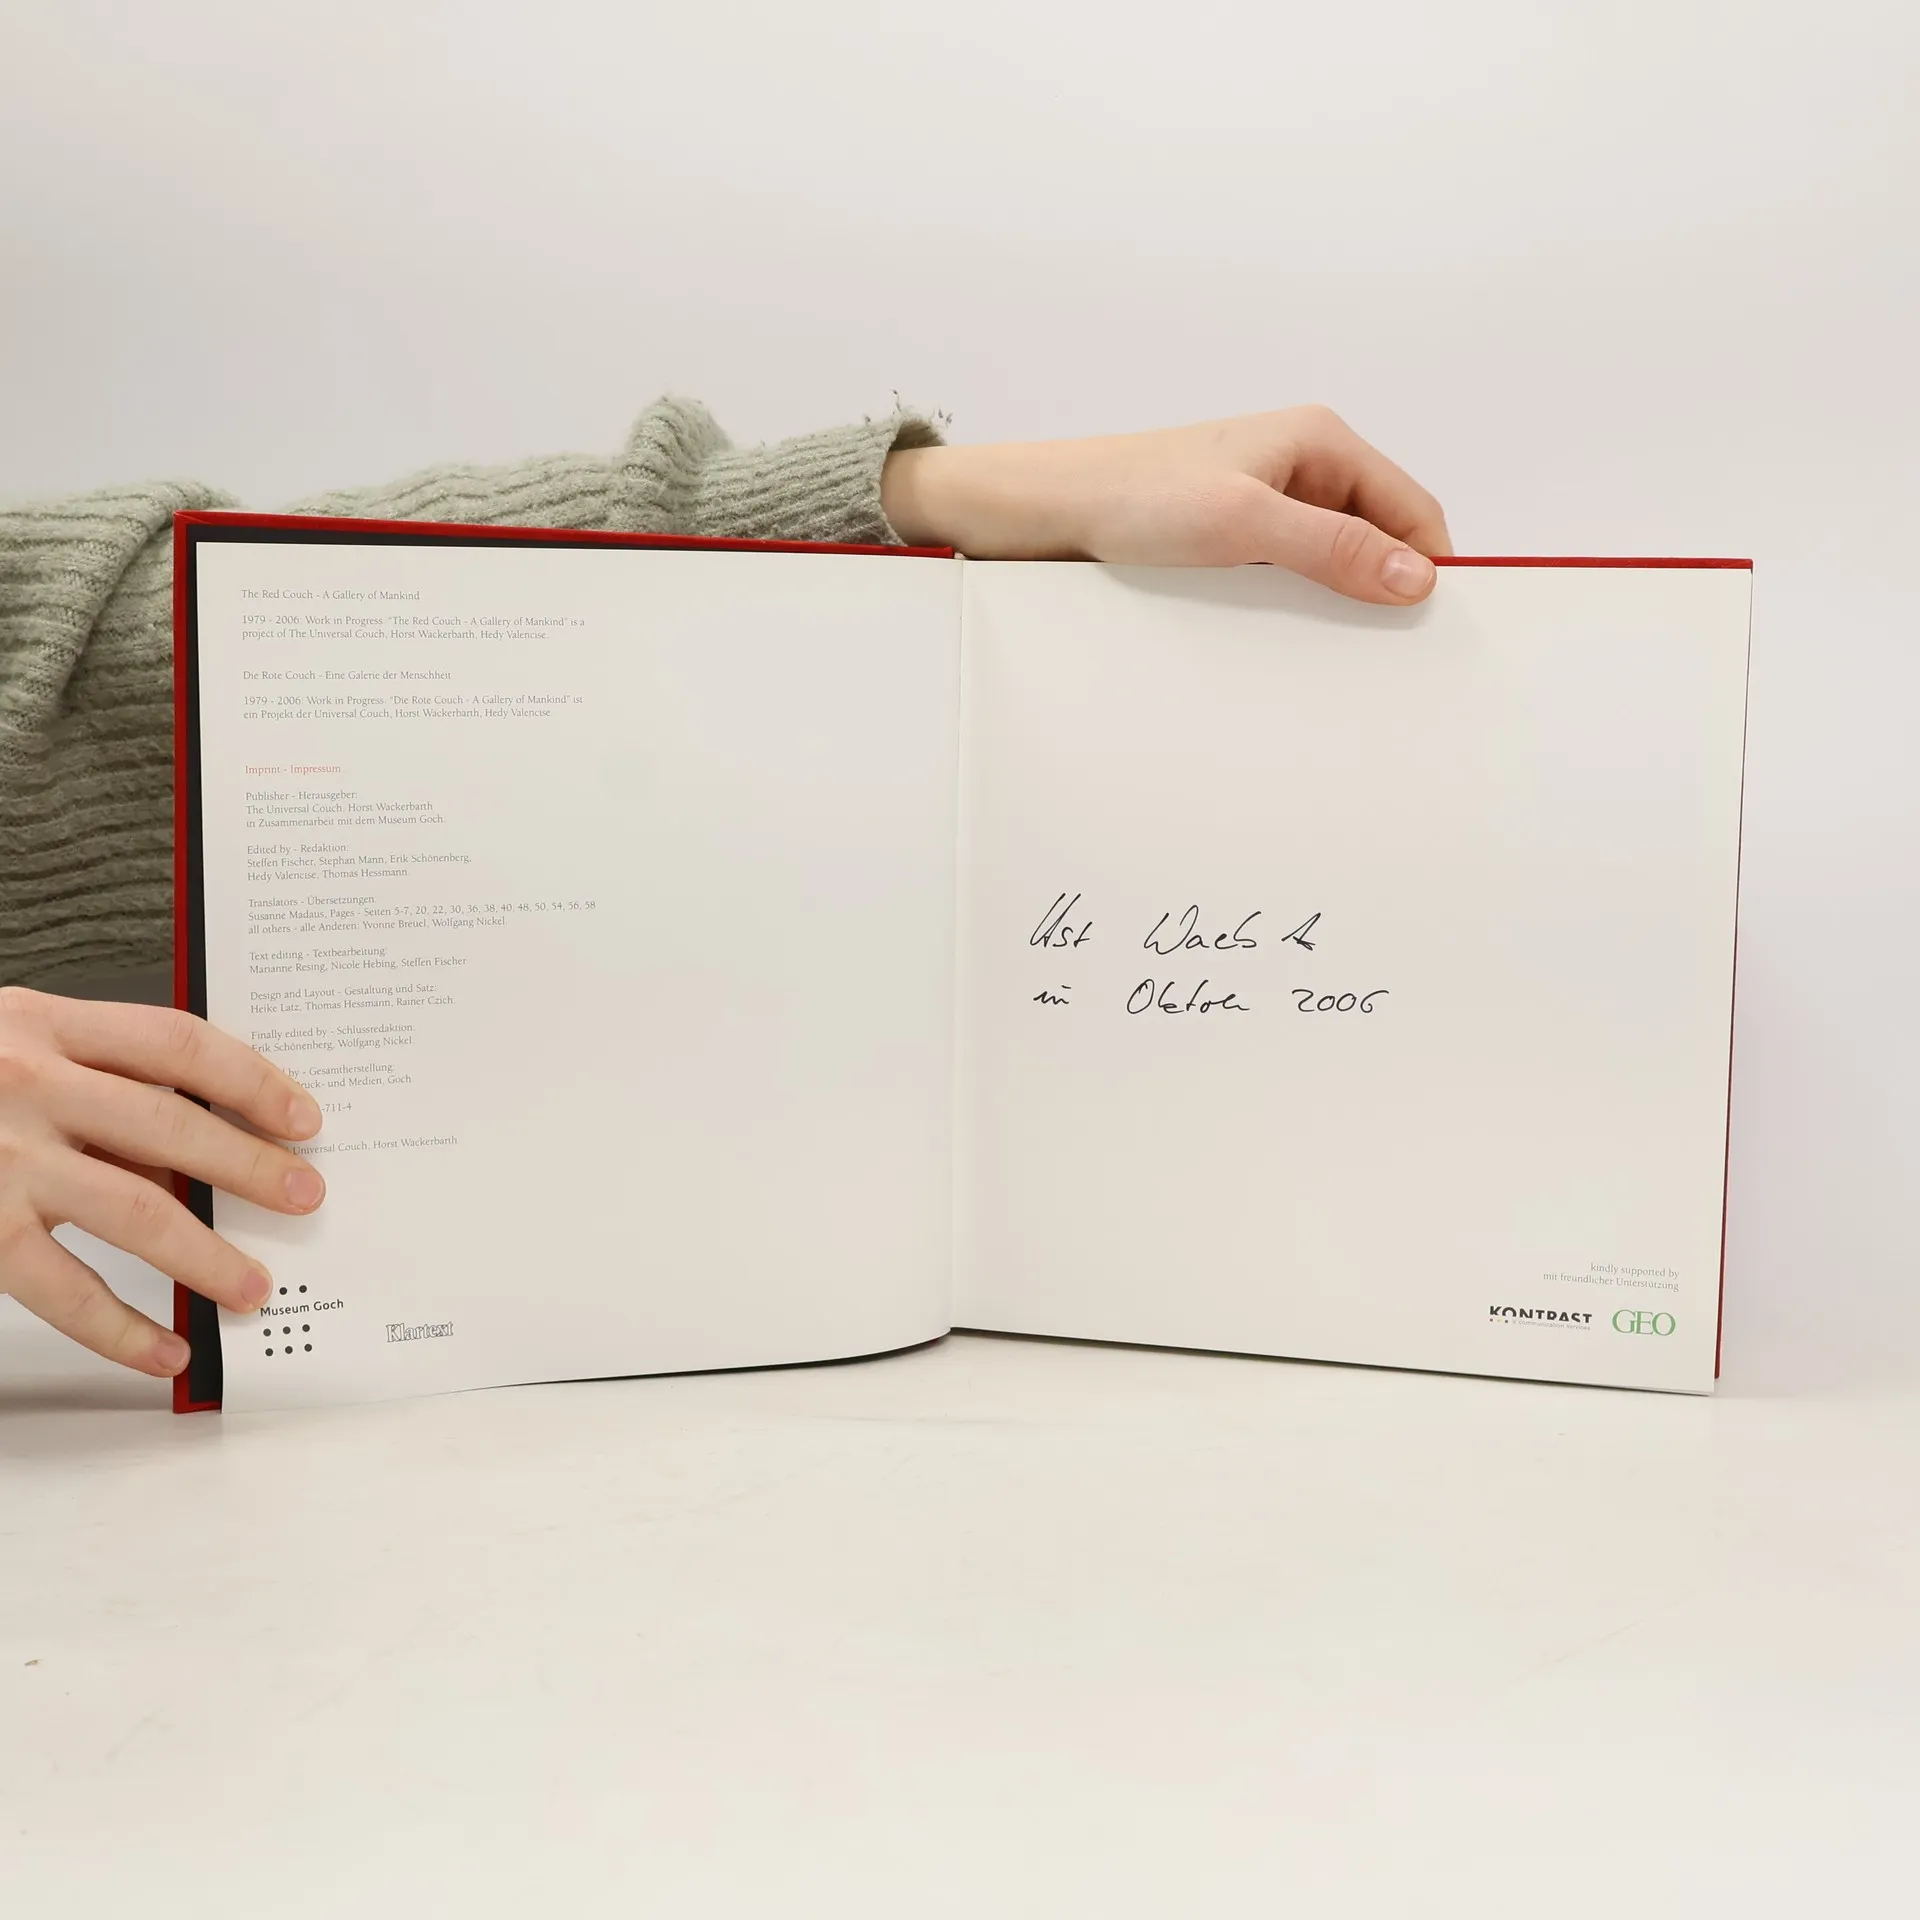 The Red Couch - A Gallery of Mankind
1979 - 2006: Work in Progress. "The Red Couch - A Gallery of Mankind" is a
project of The Universal Couch, Horst Wackerbarth, Hedy Valencise.
Die Rote Couch - Eine Galerie der Menschheit
1979 - 2006: Work in Progress. "Die Rote Couch - A Gallery of Mankind" ist
ein Projekt der Universal Couch, Horst Wackerbarth, Hedy Valencise
Imprint - Impressum
Publisher - Herausgeber:
The Universal Couch, Horst Wackerbarth
in Zusammenarbeit mit dem Museum Goch.
Edited by - Redaktion:
Steffen Fischer, Stephan Mann, Erik Schönenberg,
Hedy Valencise, Thomas Hessmann.
Translators - Übersetzungen
Susanne Madaus, Pages - Seiten 5-7, 20, 22, 30, 36, 38, 40, 48, 50, 54, 56, 58
all others - alle Anderen: Yvonne Breuel, Wolfgang Nickel.
Text editing - Textbearbeitung:
Marianne Resing, Nicole Hebing, Steffen Fischer
Design and Layout - Gestaltung und Satz:
Heike Latz, Thomas Hessmann, Rainer Czich.
Finally edited by - Schlussredaktion:
Erik Schönenberg, Wolfgang Nickel.
by - Gesamtherstellung:
ruck- und Medien, Goch
-711-4
Universal Couch, Horst Wackerbarth
Museum Goch
Klartext
in Oktober 2006
kindly supported by
mit freundlicher Unterstützung
KONTRAST GEO
communication services